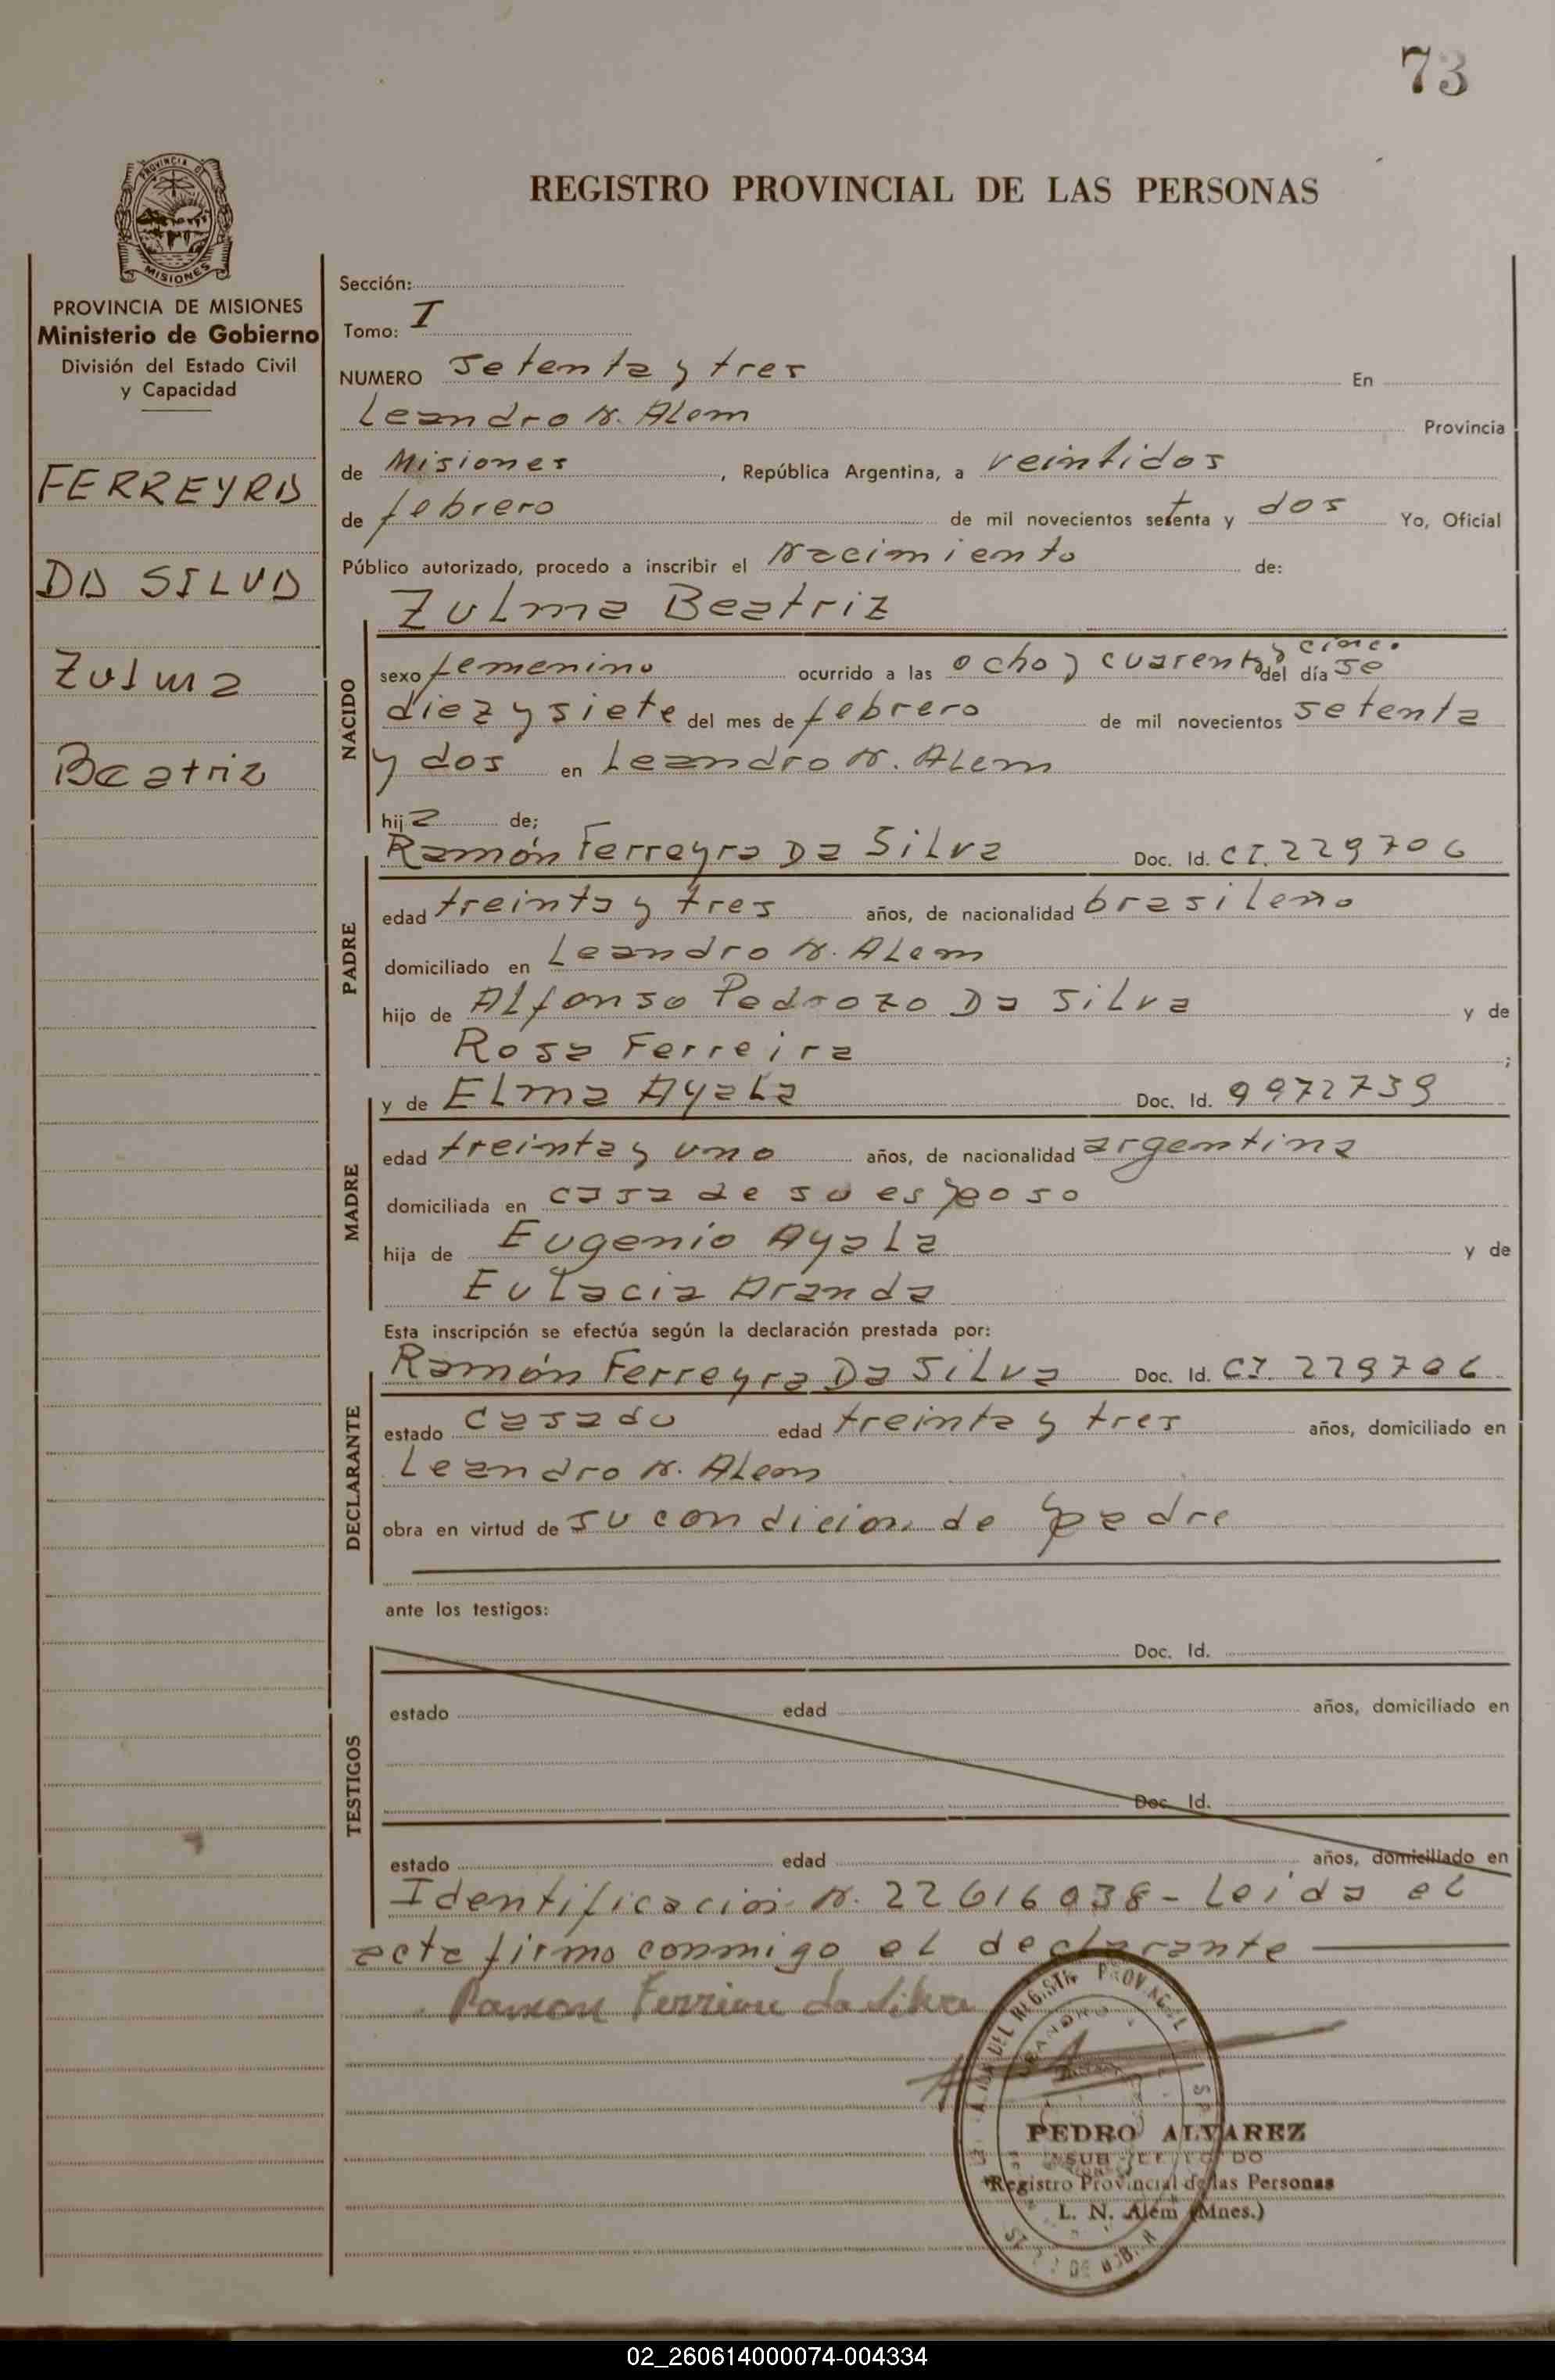 73
REGISTRO PROVINCIAL DE LAS PERSONAS
PROVINCIA DE MISIONES
Ministerio de Gobierno
División del Estado Civil
y Capacidad
FERREYRA
DA SILVA
Zulma
Beatriz
Sección:
Tomo: I
NUMERO setenta y tres En
Leandro N. Alem Provincia
de Misiones, República Argentina, a veintidos
de febrero de mil novecientos setenta y dos Yo, Oficial
Público autorizado, procedo a inscribir el Nacimiento de:
Zulma Beatriz
NACIDO
sexo femenino ocurrido a las ocho y cuarenta y cinco del día se
diez y siete del mes de febrero de mil novecientos setenta
y dos en Leandro N. Alem
hija de;
Ramón Ferreyra Da Silva Doc. Id. CI. 229706
PADRE
edad treinta y tres años, de nacionalidad brasileño
domiciliado en Leandro N. Alem
hijo de Alfonso Pedrozo Da Silva y de
Rosa Ferreira ;
y de Elma Ayala Doc. Id. 9972739
MADRE
edad treinta y uno años, de nacionalidad argentina
domiciliada en casa de su esposo
hija de Eugenio Ayala y de
Eulacia Aranda
Esta inscripción se efectúa según la declaración prestada por:
Ramón Ferreyra Da Silva Doc. Id. CI. 229706
DECLARANTE
estado casado edad treinta y tres años, domiciliado en
Leandro N. Alem
obra en virtud de su condicion de padre
ante los testigos:
TESTIGOS
Doc. Id.
estado edad años, domiciliado en
Doc. Id.
estado edad años, domiciliado en
Identificación N. 22616038 - Leida el
acta firma conmigo el declarante
Ramon da Silva
PEDRO ALVAREZ
Registro Provincial de las Personas
L. N. Alem (Mnes.)
02_260614000074-004334